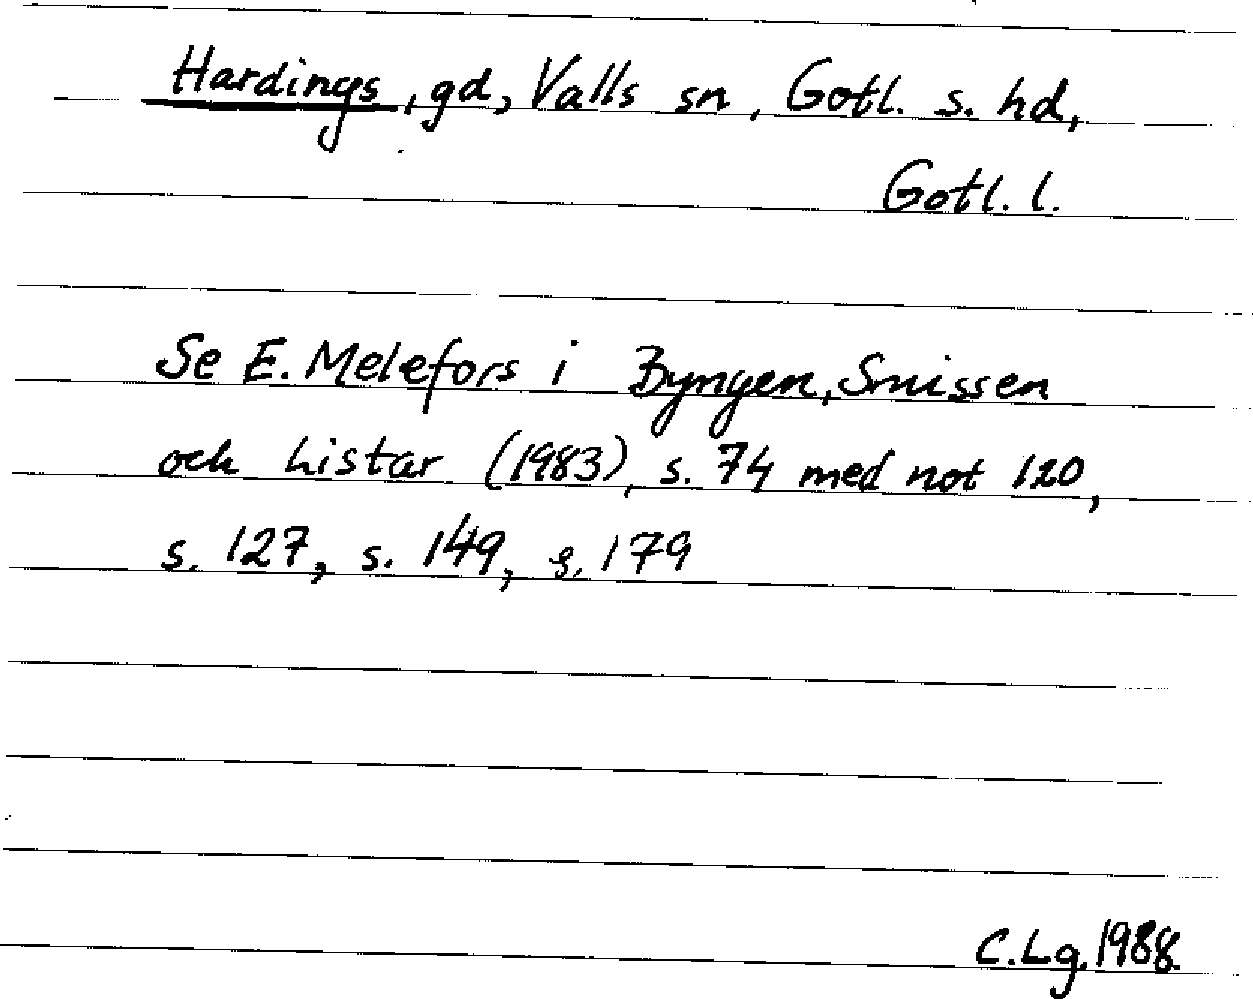 Hardings, gd, Valls sn, Gotl. s. hd,
Gotl. l.
Se E. Melefors i Byngen, Snissen
och Listar (1983), s. 74 med not 120,
s. 127, s. 149, s. 179
C.Lg. 1988